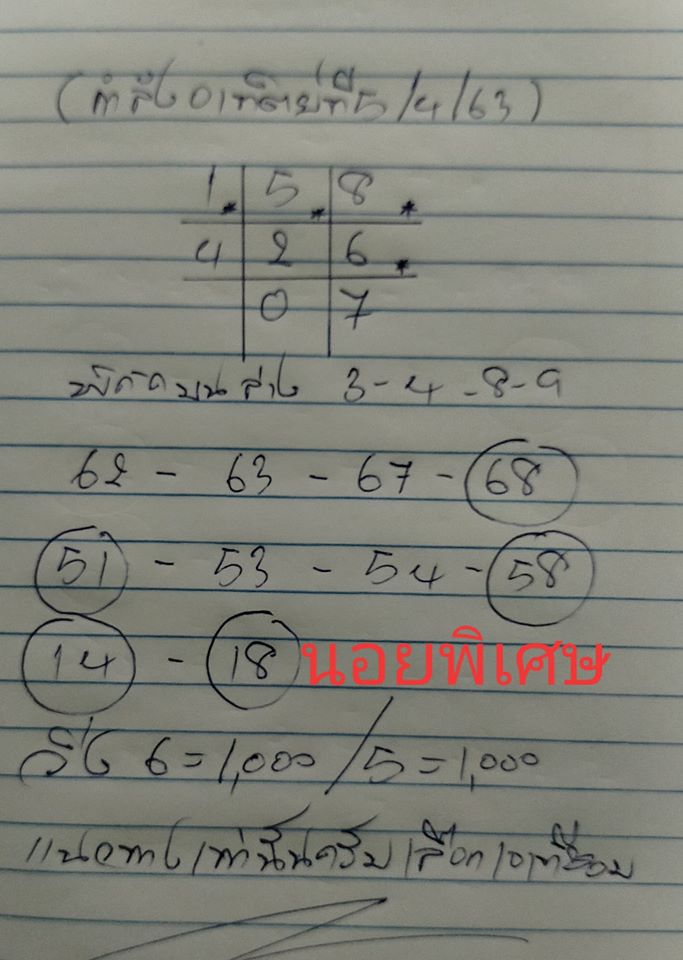 (กำลังอาทิตย์ที่5/4/63)
1. 5. 8.
4 2 6.
0 7
พิกัดบนล่าง 3-4-8-9
62 - 63 - 67 - 68
51 - 53 - 54 - 58
14 - 18 นอยพิเศษ
วิ่ง 6=1,000/5=1,000
แนวทางเท่านั้นครับเลือกเอาที่ชอบ